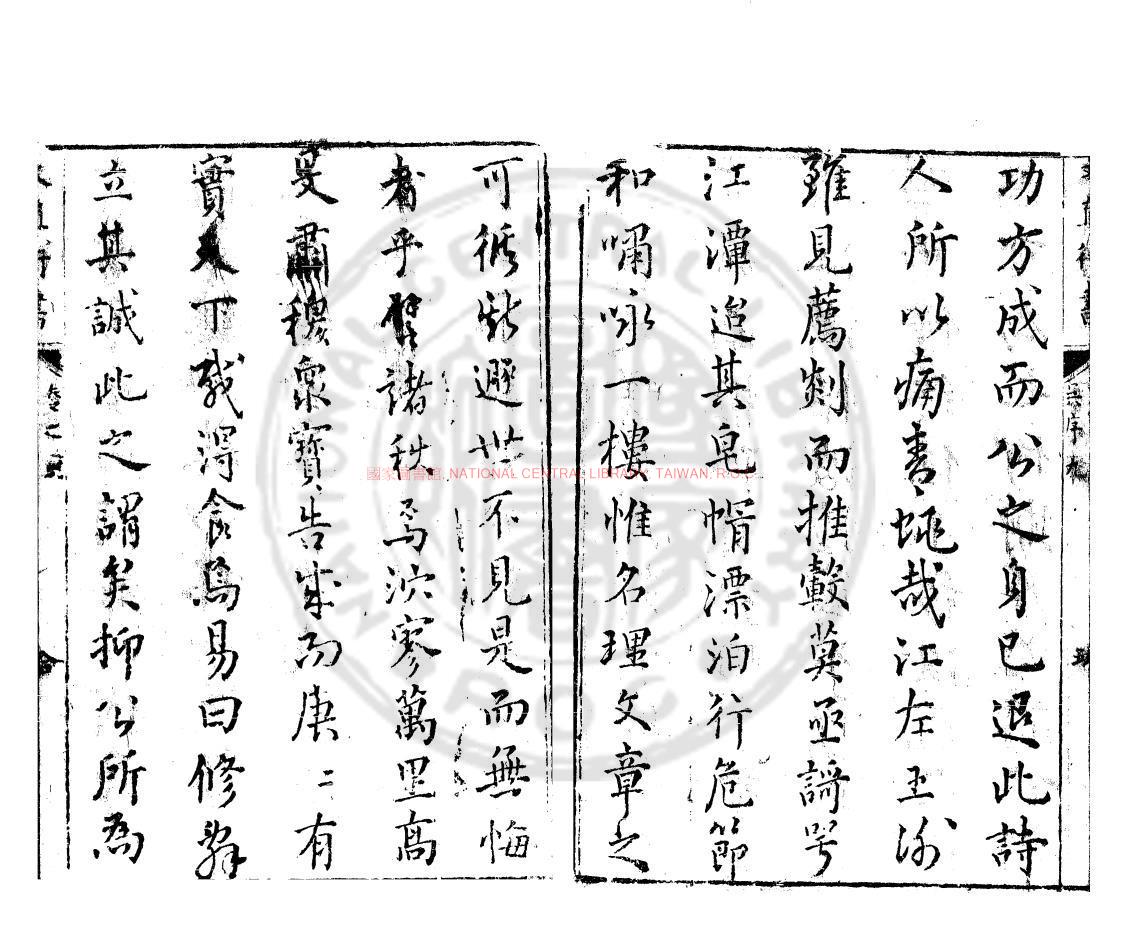 功方成而公之身已退此詩
人所以痛青蠅哉江左王謝
雖見薦剡而推轂莫亟謌咢
江潭迨其皂帽漂泊行危節
和嘯咏一樓惟名理文章之
可循歟遯世不見是而無悔
者乎譬諸秋焉泬寥萬里高
旻肅穆衆寶告成而庚二有
實天下咸得食焉易曰修辭
立其誠此之謂矣抑公所為
國家圖書館, NATIONAL CENTRAL LIBRARY, TAIWAN, R.O.C